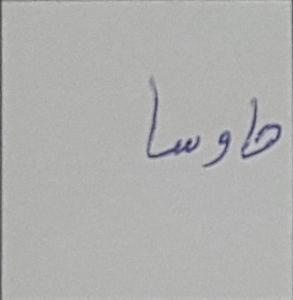 طاوسا